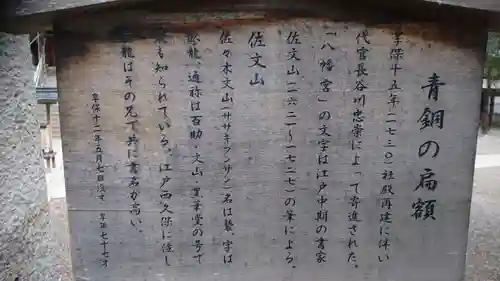 青銅の扁額
享保十五年(一七三〇)社殿再建に伴い
代官長谷川忠崇によって寄進された。
「八幡宮」の文字は江戸中期の書家
佐文山(一六二一〜一七二七)の筆による。
佐文山
佐々木文山(ササキブンザン)名は襲、字は
臥龍、通称は百助・文山・墨華堂の号で
も知られている。江戸西久保に住し
龍はその兄で共に書名が高い。
享保十二年五月七日没す 享年七十七才